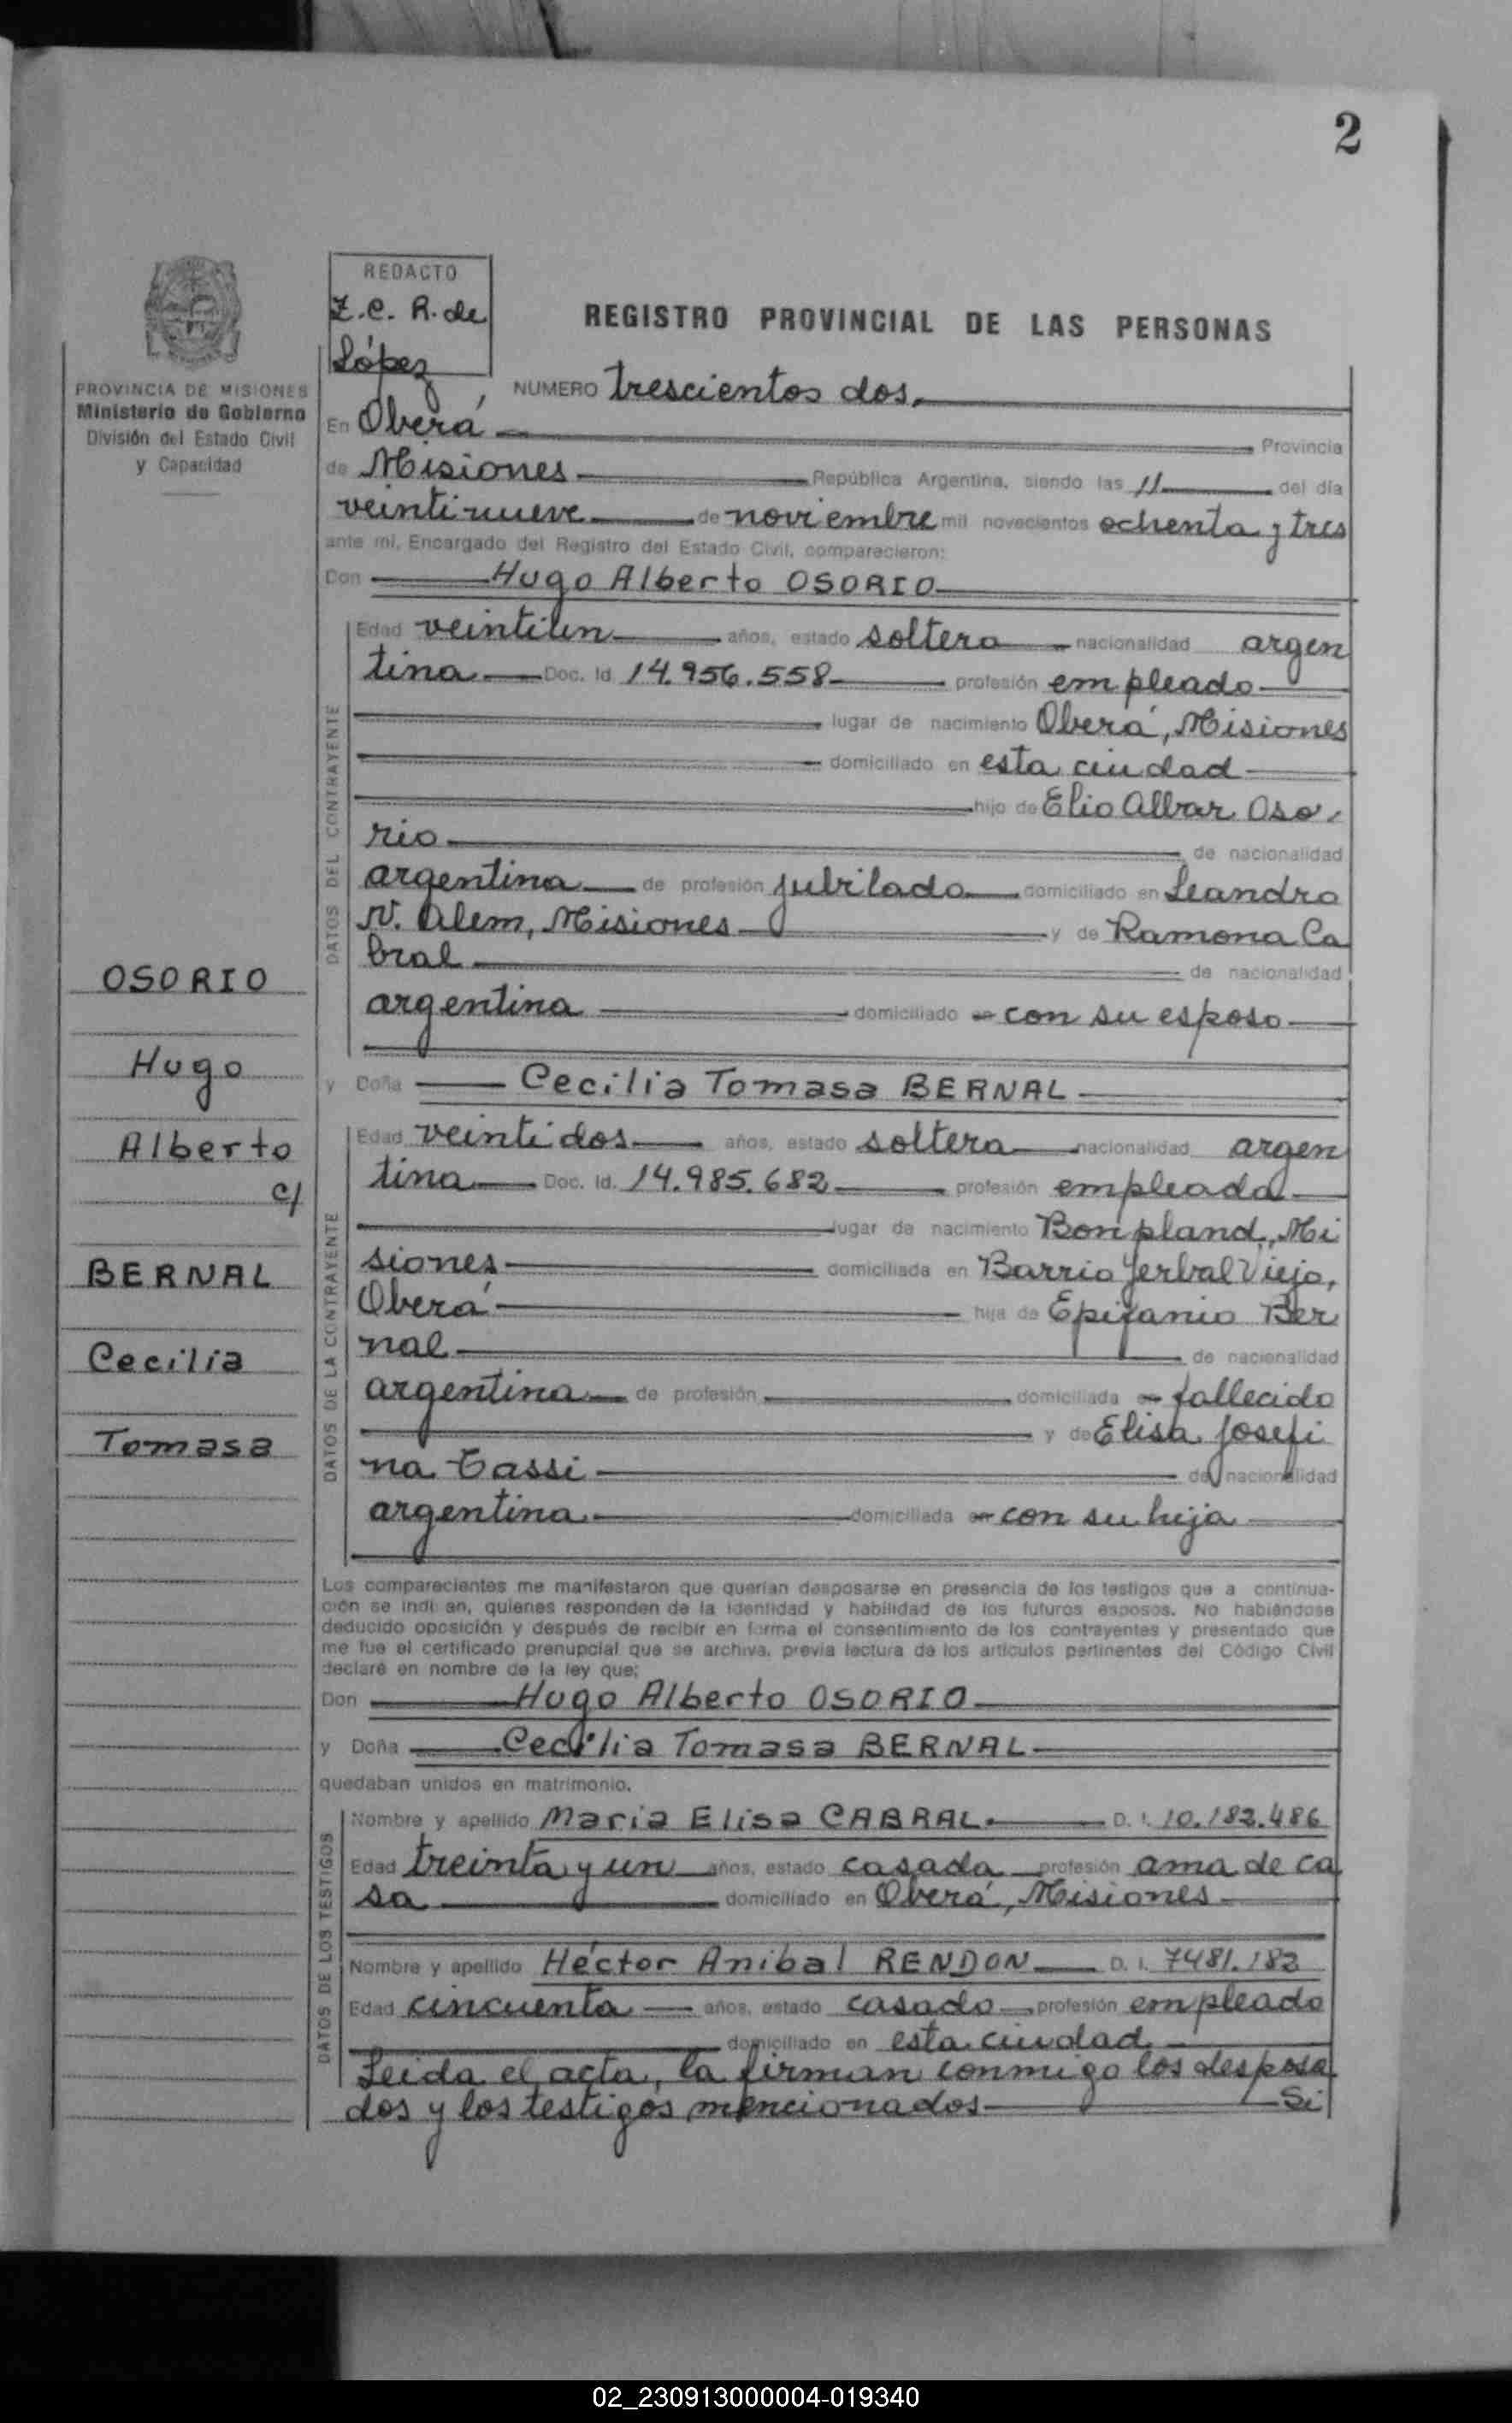 2
REDACTO
Z.C. R. de
López
REGISTRO PROVINCIAL DE LAS PERSONAS
PROVINCIA DE MISIONES
Ministerio de Gobierno
División del Estado Civil
y Capacidad
NUMERO trescientos dos,
En Oberá Provincia
de Misiones República Argentina, siendo las 11 del día
veintinueve de noviembre mil novecientos ochenta y tres
ante mí, Encargado del Registro del Estado Civil, comparecieron:
Don Hugo Alberto OSORIO
DATOS DEL CONTRAYENTE
Edad veintiun años, estado soltero nacionalidad argen
tina Doc. Id. 14.956.558 profesión empleado
lugar de nacimiento Oberá, Misiones
domiciliado en esta ciudad
hijo de Elio Albar Oso
rio de nacionalidad
argentina de profesión jubilado domiciliado en Leandro
N. Alem, Misiones y de Ramona Ca
bral de nacionalidad
argentina domiciliado en con su esposo
y Doña Cecilia Tomasa BERNAL
DATOS DE LA CONTRAYENTE
Edad veintidos años, estado soltera nacionalidad argen
tina Doc. Id. 14.985.682 profesión empleada
lugar de nacimiento Bonpland, Mi
siones domiciliada en Barrio Yerbal Viejo,
Oberá hija de Epifanio Ber
nal de nacionalidad
argentina de profesión domiciliada en fallecido
y de Elisa Josefi
na Tassi de nacionalidad
argentina domiciliada en con su hija
OSORIO
Hugo
Alberto
c/
BERNAL
Cecilia
Tomasa
Los comparecientes me manifestaron que querían desposarse en presencia de los testigos que a continua-
ción se indi an, quienes responden de la identidad y habilidad de los futuros esposos. No habiéndose
deducido oposición y después de recibir en forma el consentimiento de los contrayentes y presentado que
me fue el certificado prenupcial que se archiva, previa lectura de los artículos pertinentes del Código Civil
declaré en nombre de la ley que:
Don Hugo Alberto OSORIO
y Doña Cecilia Tomasa BERNAL
quedaban unidos en matrimonio.
DATOS DE LOS TESTIGOS
Nombre y apellido Maria Elisa CABRAL D. I. 10.182.486
Edad treinta y un años, estado casada profesión ama de ca
sa domiciliado en Oberá, Misiones
Nombre y apellido Héctor Anibal RENDON D. I. 7481.182
Edad cincuenta años, estado casado profesión empleado
domiciliado en esta ciudad
Leida el acta, la firman conmigo los desposa
dos y los testigos mencionados Si
02_230913000004-019340